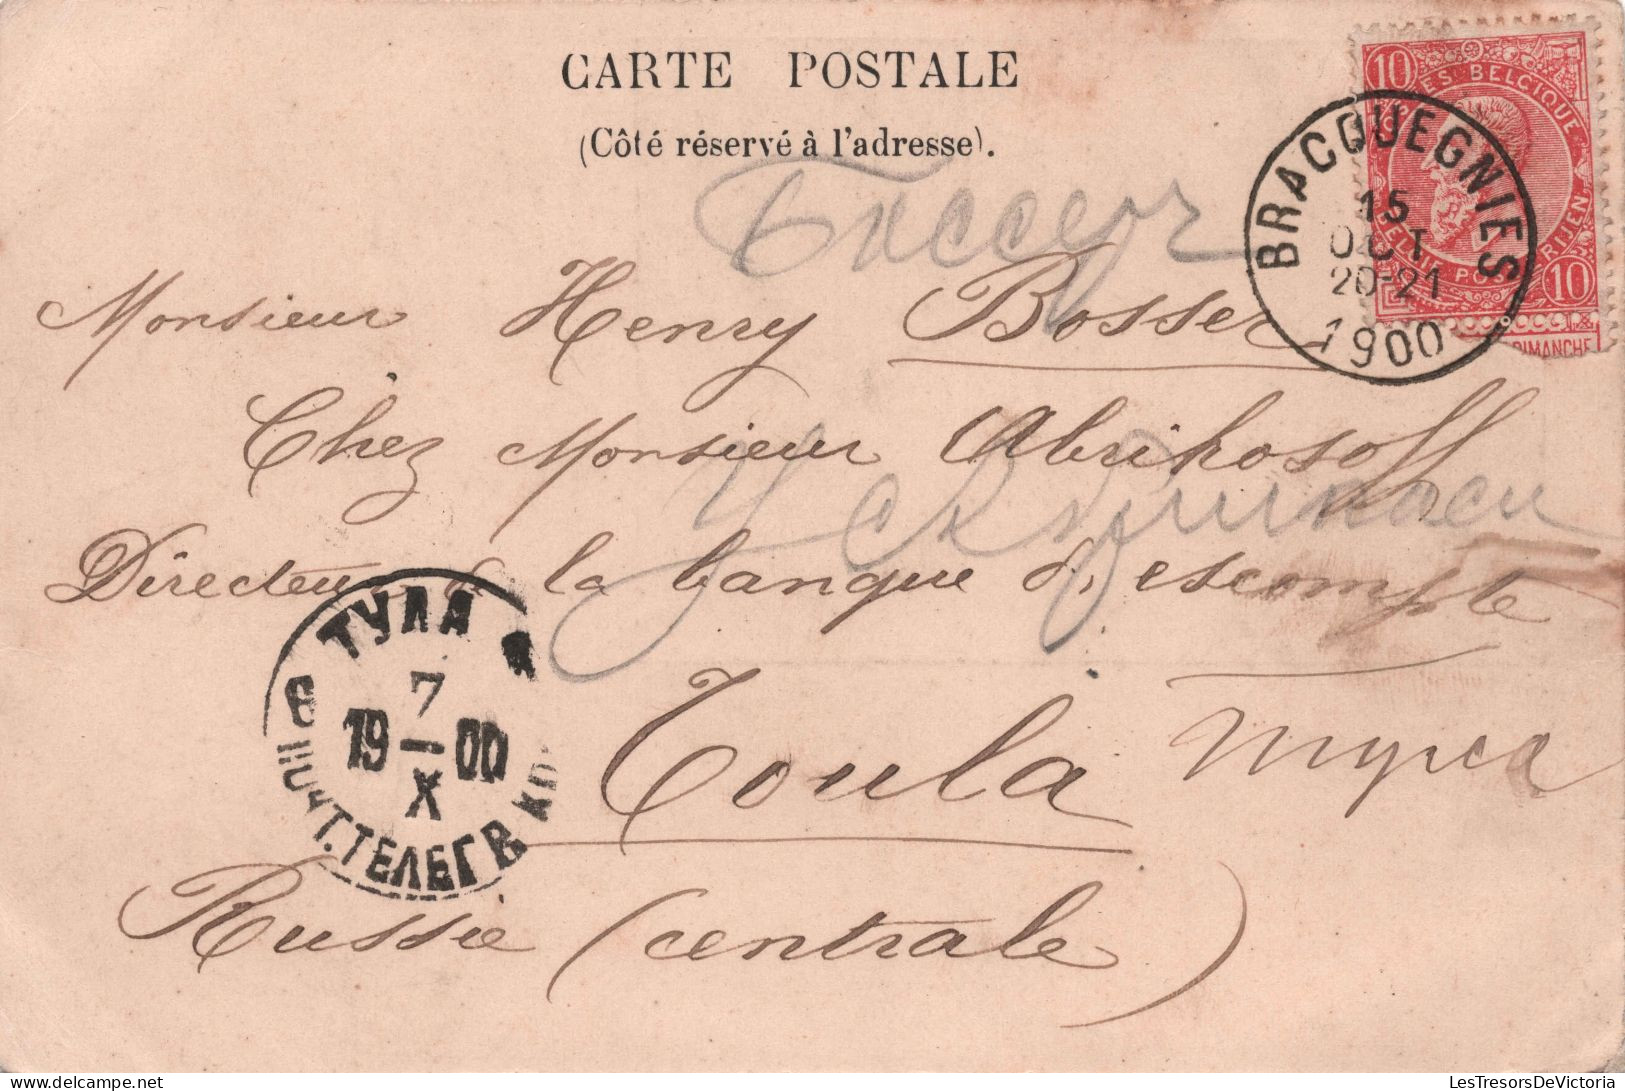 CARTE POSTALE
(Côté réservé à l'adresse).
10 POSTES BELGIQUE
BELGIË POSTERIJEN 10
DIMANCHE
BRACQUEGNIES
15
OCT
20-21
1900
Monsieur Henry Bosser
Chez Monsieur Abrikosoff
Directeur de la banque d'escompte
Toula
Russie (centrale)
ТУЛА
7
19-00
X
ПОЧТ. ТЕЛЕГР. КОН
LesTresorsDeVictoria